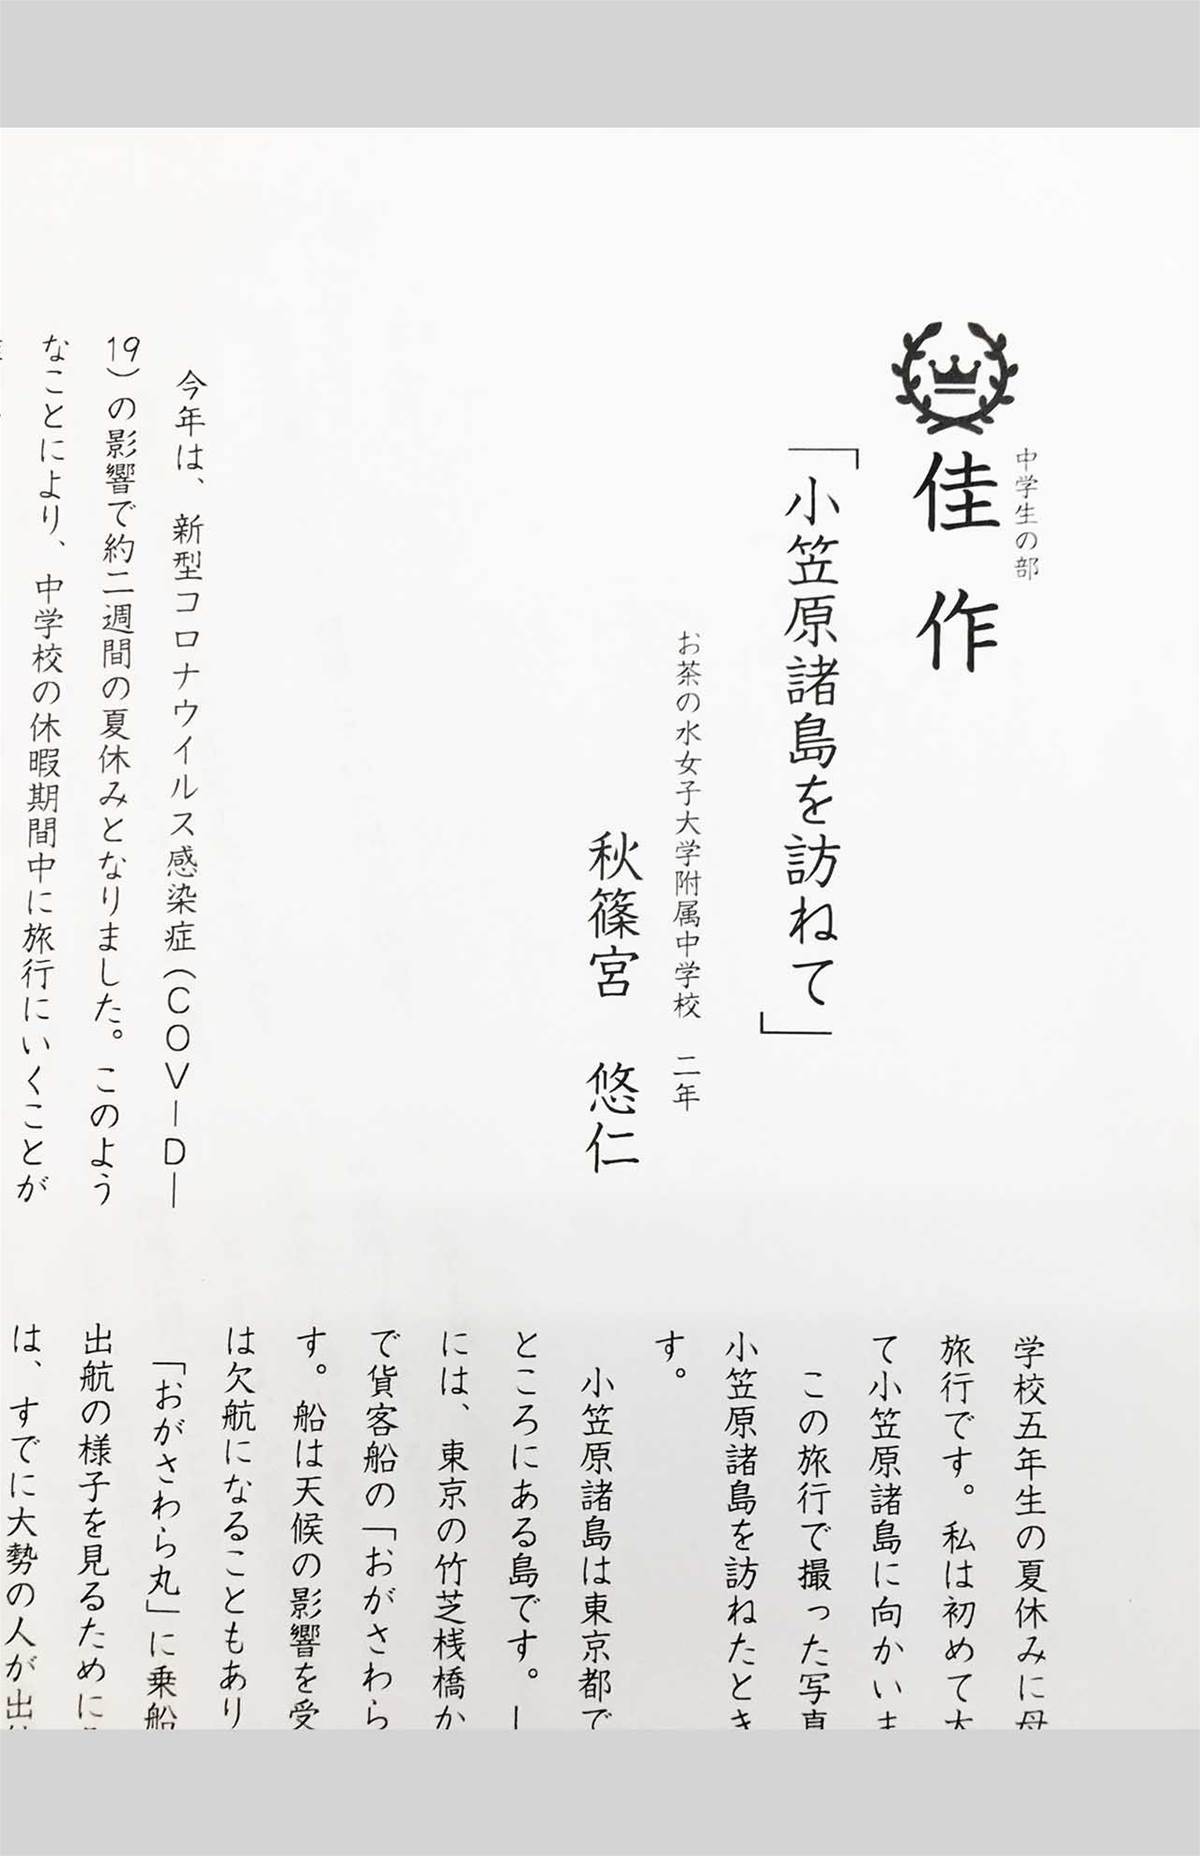 中学生の部
佳作
「小笠原諸島を訪ねて」
お茶の水女子大学附属中学校 二年
秋篠宮 悠仁
今年は、新型コロナウイルス感染症(COVID―
19)の影響で約二週間の夏休みとなりました。このよう
なことにより、中学校の休暇期間中に旅行にいくことが
学校五年生の夏休みに母
旅行です。私は初めて大
て小笠原諸島に向かいま
この旅行で撮った写真
小笠原諸島を訪ねたとき
す。
小笠原諸島は東京都で
ところにある島です。
には、東京の竹芝桟橋か
で貨客船の「おがさわら
す。船は天候の影響を受
は欠航になることもあり
「おがさわら丸」に乗船
出航の様子を見るために
は、すでに大勢の人が出